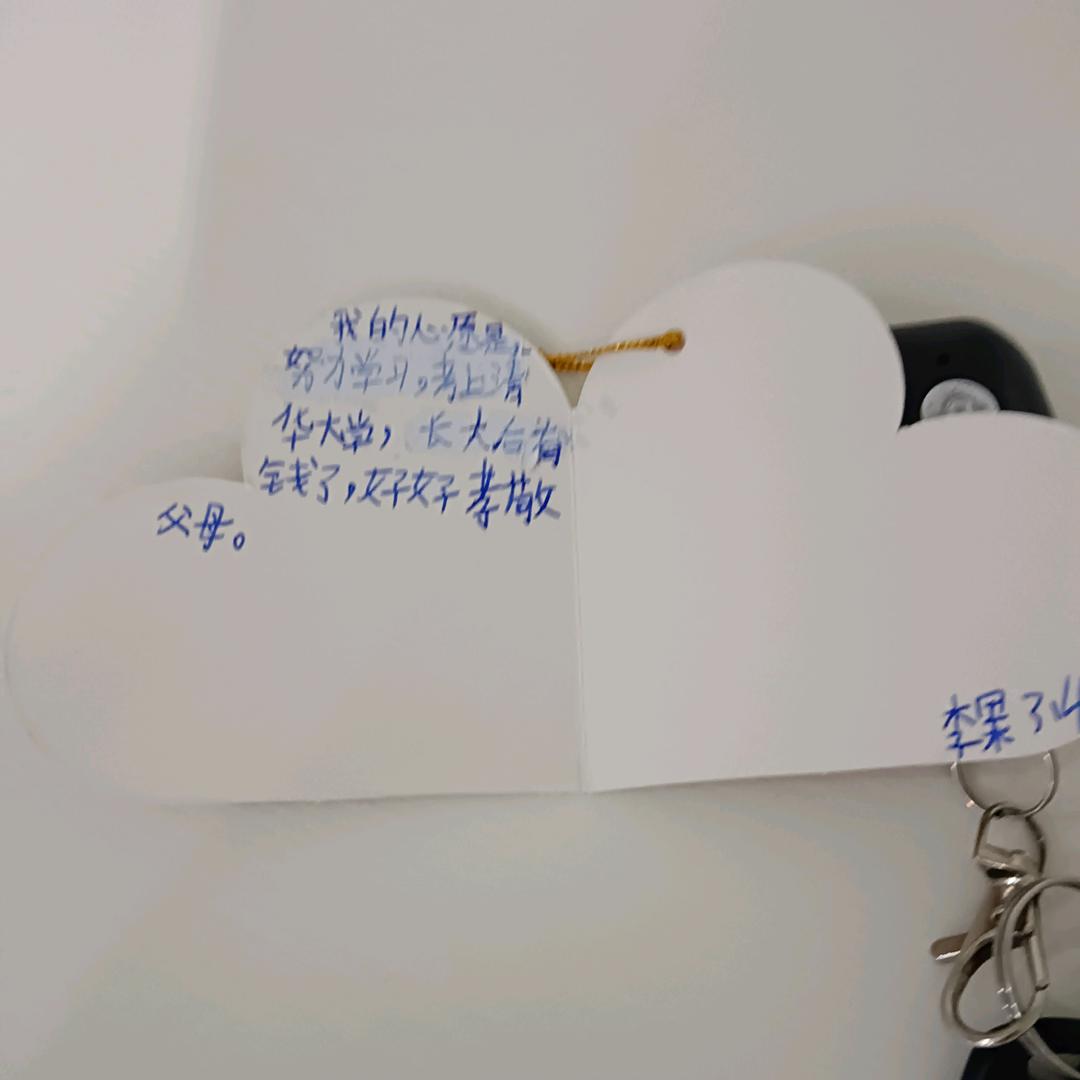 我的心愿是,
努力学习,考上清
华大学,长大后有
钱了,好好孝敬
父母。
李果